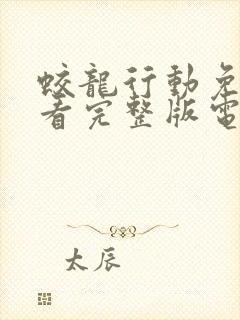 蛟龍行動免
看完整版電
太辰